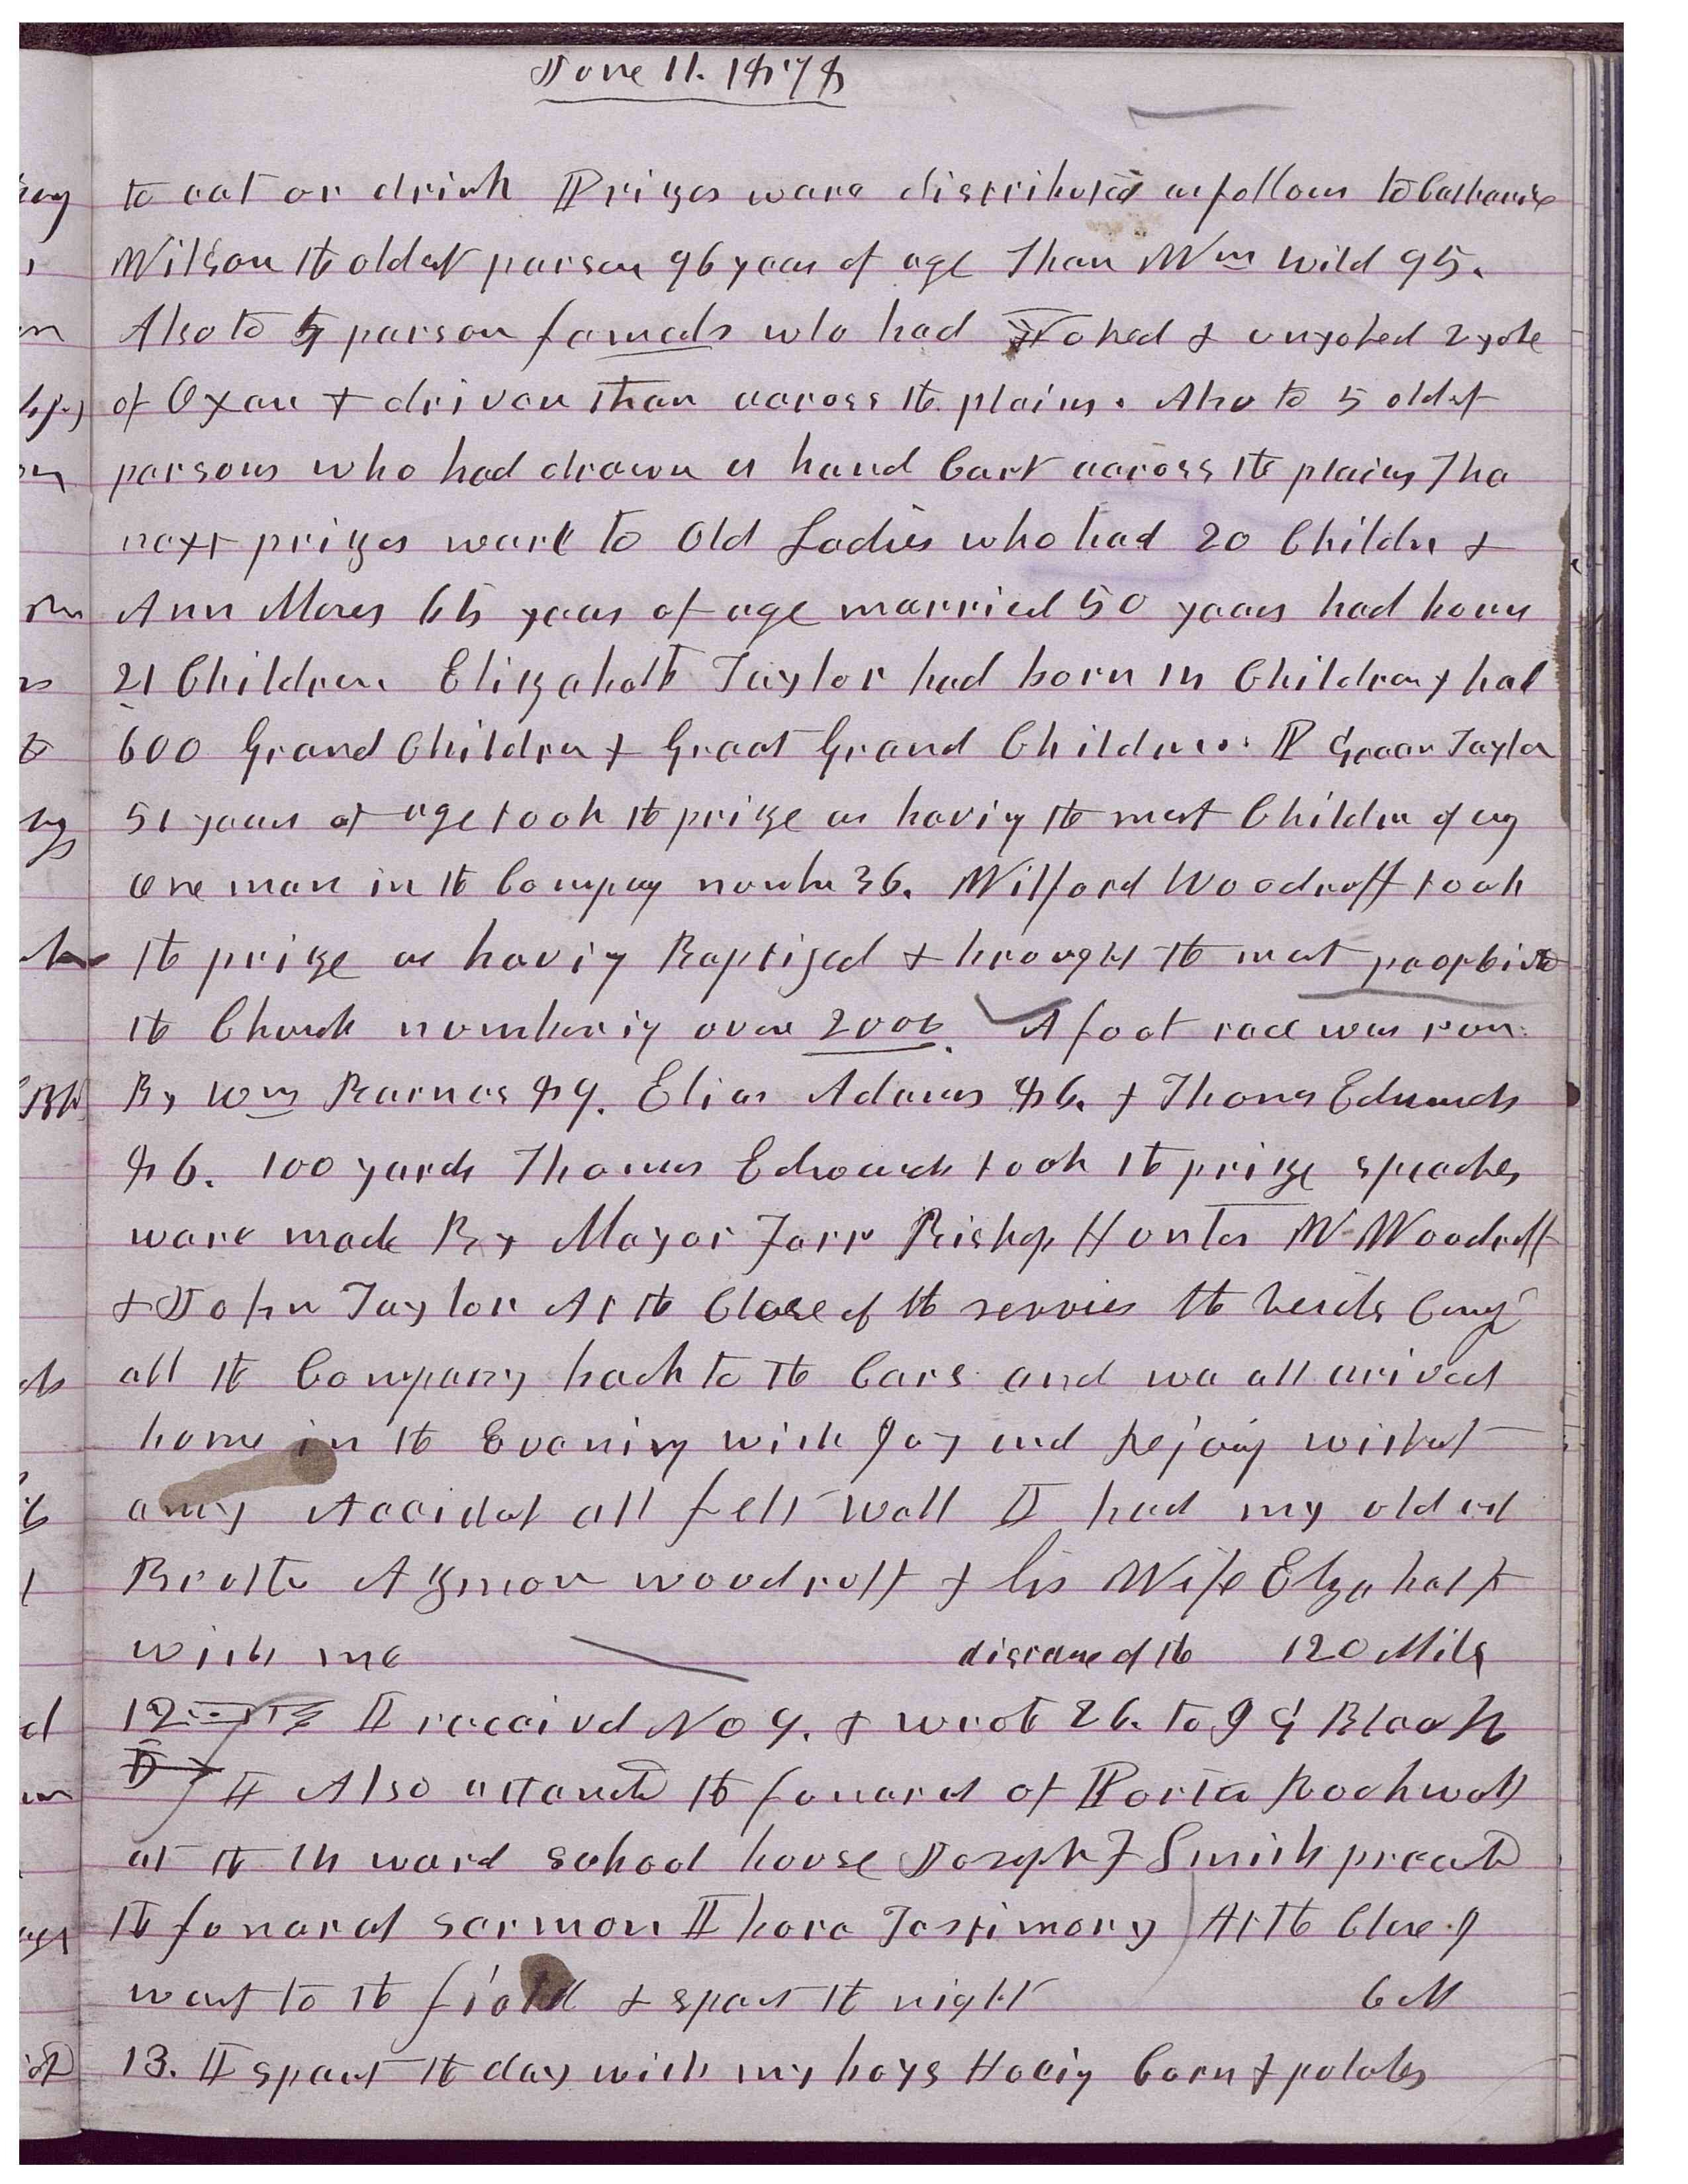 June 11. 1878
to eat or drink Prizes were distributed as follows to Catharine
Wilson the oldest person 96 years of age Then Wm Wild 95.
Also to 5 person females who had Yoked & unyoked 2 yoke
of Oxen & driven them across the plains. Also to 5 oldest
persons who had drawn a hand Cart across the plains The
next prizes ware to Old Ladies who had 20 Children &
Ann Moses 65 years of age married 50 years had born
21 Children Elizabeth Taylor had born 11 Children & had
600 Grand Children & Great Grand Children. P Green Taylor
51 years of age took the prize as having the most Children of any
one man in the Company number 36. Wilford Woodruff took
the prize as having Baptized & brought the most people into
the Church numbering over 2000. A foot race was run
By Wm Barnes 89. Elias Adams 86. & Thomas Edwards
86. 100 yards Thomas Edwards took the prize speeches
ware made By Mayor Farr Bishop Hunter W Woodruff
& John Taylor At the Close of the servies the
all the Company back to the Cars and we all arived
home in the Evening with Joy and Rejoing without
any Accidet all felt well I had my oldest
Brother Azmon woodruff & his Wife Elizabeth
with me distance of the 120 Mils
12 I received No 9. & wrote 26. to J G Bleak
I Also attended the funeral of Porter Rockwell
at the 14 ward school house Joseph F Smith preached
the funeral sermon I bore Testimony At the Close I
went to the field & spent the night 6 M
13. I spent the day with my boys Hoeing Corn & potatoes